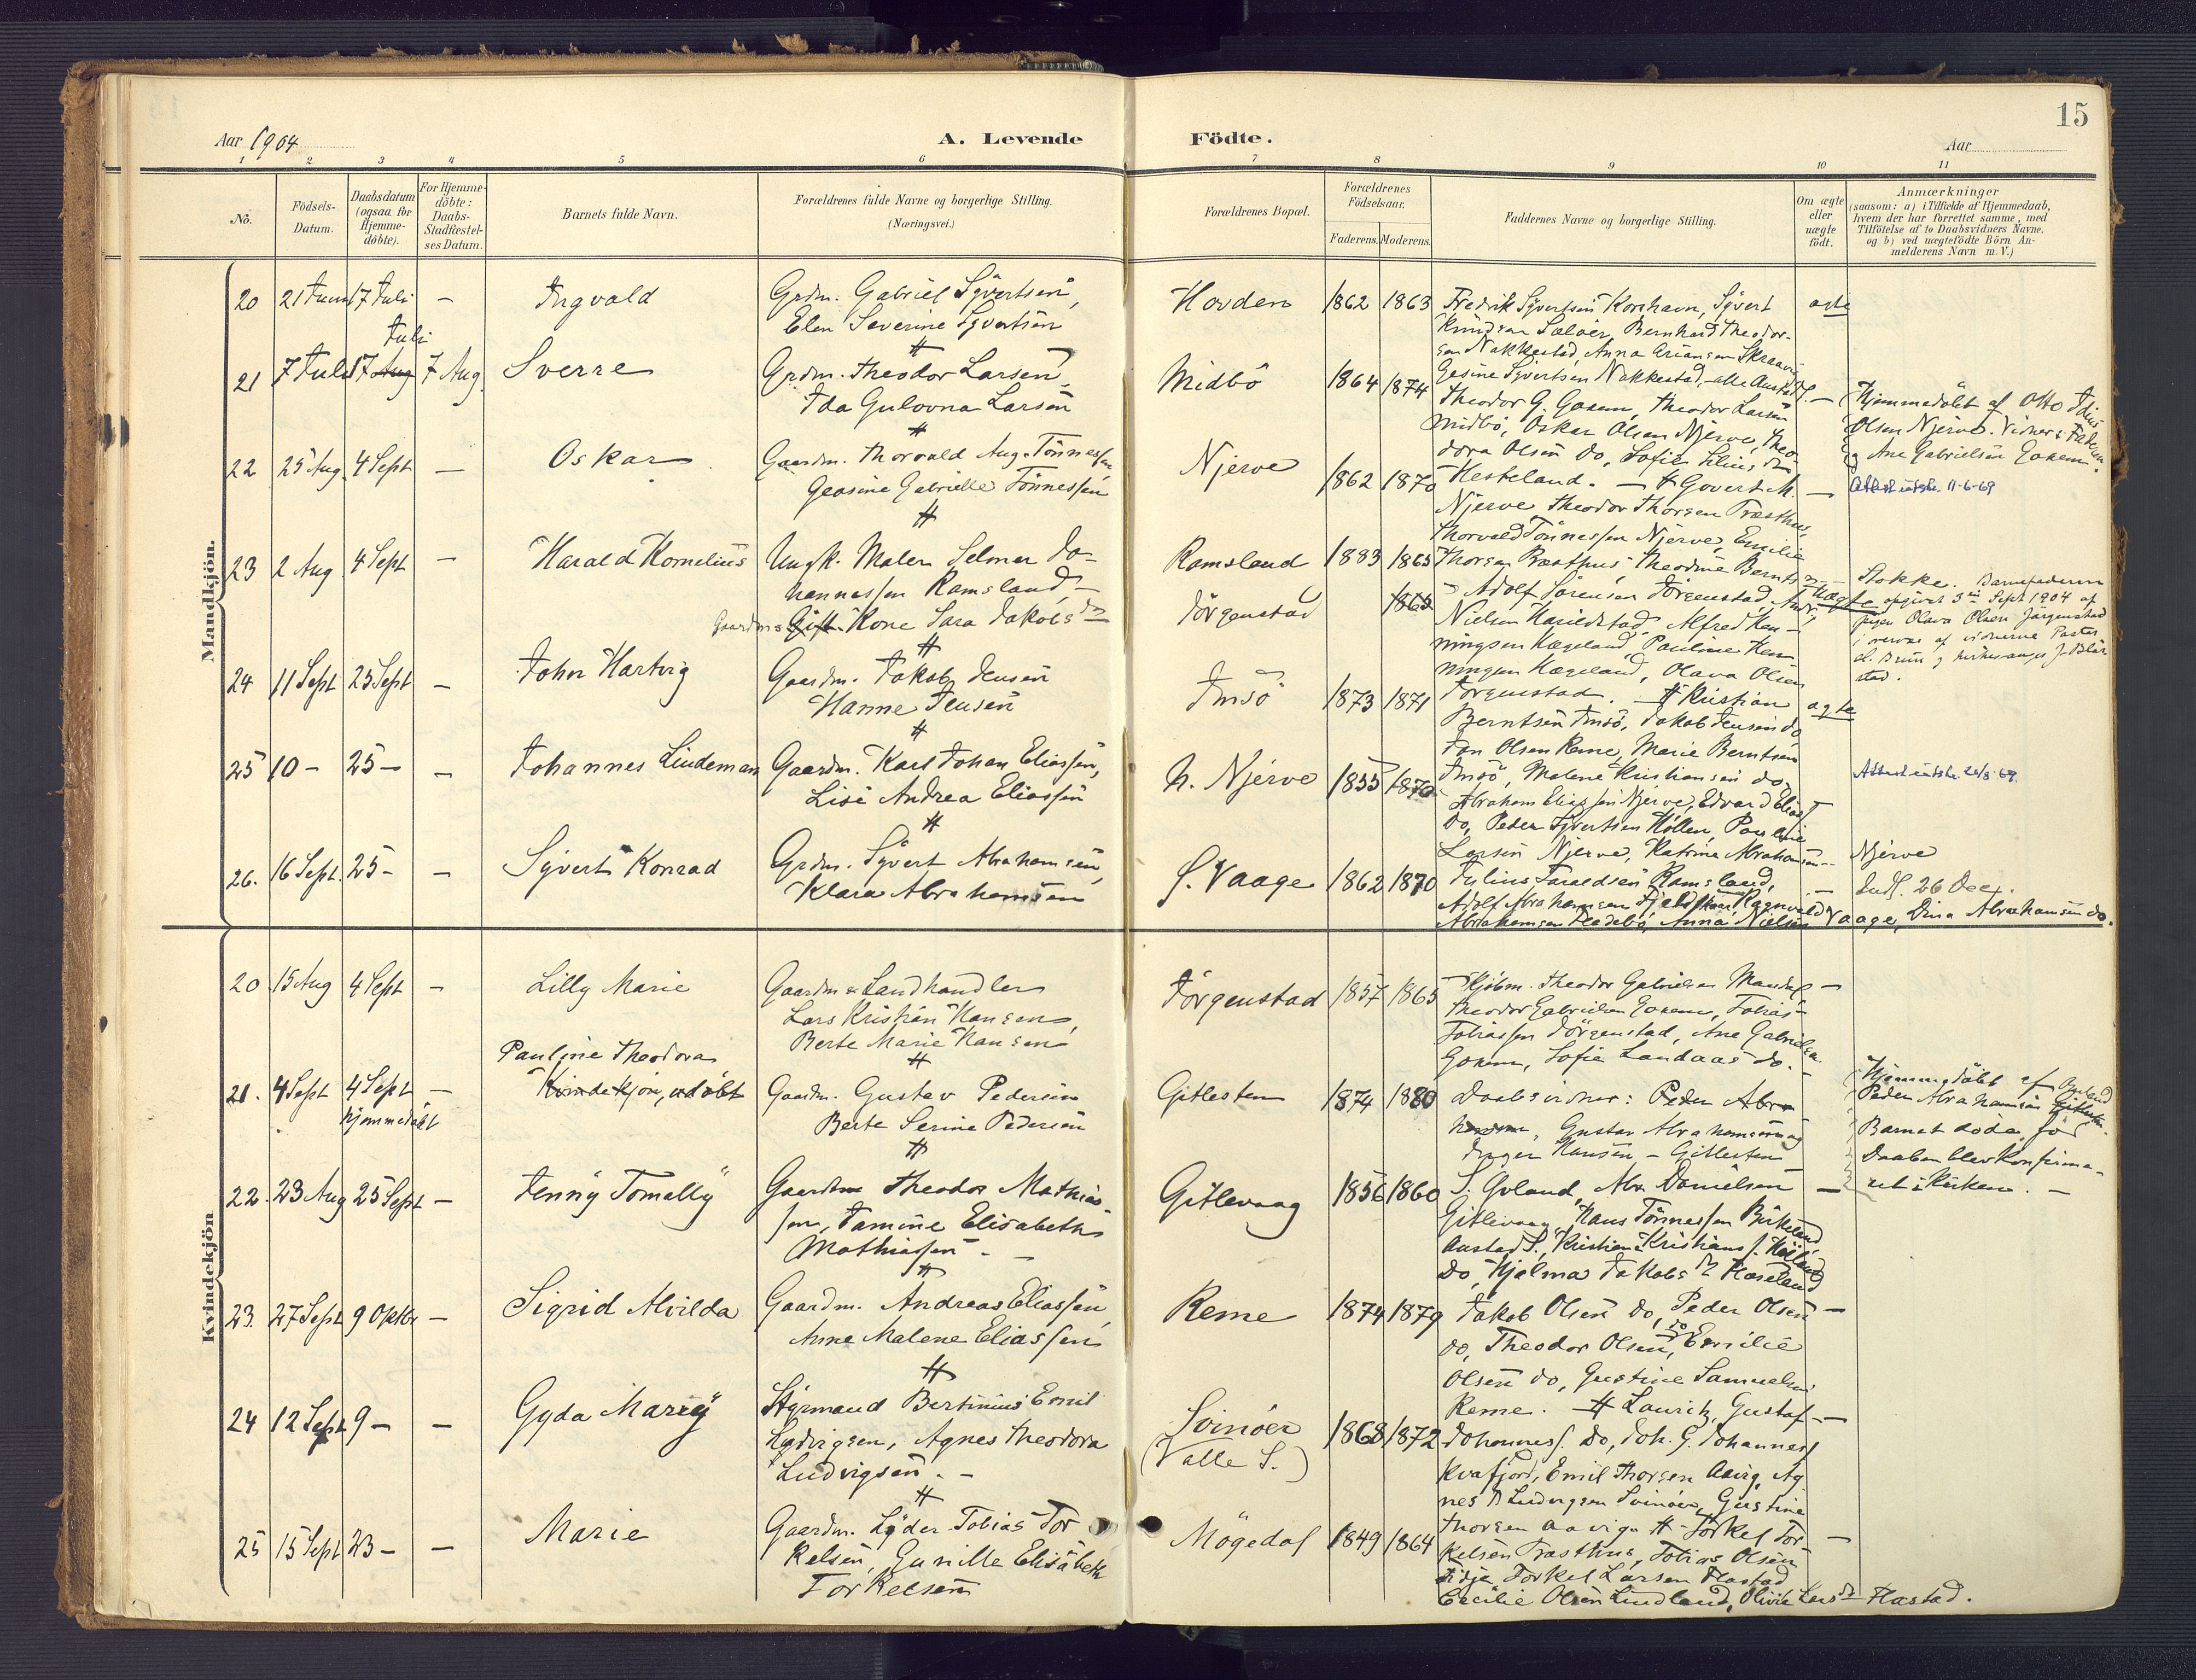 15
Aar 1904
A. Levende Födte.
Aar
1 2 3 4 5 6 7 8 9 10 11
No.
Födsels-
Datum.
Daabsdatum
(ogsaa for
Hjemme-
döbte).
For Hjemme-
döbte:
Daabs-
Stadfæstel-
ses Datum.
Barnets fulde Navn.
Forældrenes fulde Navne og borgerlige Stilling.
(Næringsvei.)
Forældrenes Bopæl.
Forældrenes
Födselsaar.
Faderens. Moderens.
Faddernes Navne og borgerlige Stilling.
Om ægte
eller
uægte
födt.
Anmærkninger
(saasom: a) i Tilfælde af Hjemmedaab,
hvem der har forrettet samme, med
Tilföielse af to Daabsvidners Navne.
og b) ved uægtefödte Börn An-
melderens Navn m. V.)
Mandkjön.
20 21 Juni 17 Juli – Ingvald
Grdm. Gabriel Syvertsen,
Elen Severine Syvertsen
Hovden 1862 1863
Fredrik Syvertsen Korshavn, Syvert
Knudsen Saløer, Bernhard Theodor-
sen Nakkestad, Anna Ariansen Skraavig
Gesine Syvertsen Nakkestad, – alle Austad S.
ægte
21 7 Juli 17 Aug Juli 7 Aug. Sverre
Grdm. Theodor Larsen
Ida Gulovna Larsen
Midbö 1864 1874
Theodor G. Gasem, Theodor Larsen
Midbö, Oskar Olsen Njerve, Theo-
dora Olsen do, Sofie
Hesteland. –
–
Hjemmedöbt af Otto
Olsen Njerve. Vidner: Faderen
og Ane Gabrielsen Gasem.
22 25 Aug. 4 Sept – Oskar
Gaardm. Thorvald Aug. Tönnessen
Geosine Gabrielle Tönnessen
Njerve 1862 1870
Govert M.
Njerve Theodor Thorsen Træsthus,
Thorvald Tönnessen Njerve, Emilie
Thorsen Træsthus Theodine Bernts
–
Attest utst. 11-6-69
Stokke.
23 2 Aug. 4 Sept – Harald Kornelius
Ungk. Maler Selmer Jo-
hannessen Ramsland, –
Gaardms Gift Kone Sara Jakobs dtr
Ramsland 1883 1865
Jörgenstad 1865
Adolf Sörensen Jörgenstad, Andr.
Nielsen Harildstad, Alfred Hen-
ningsen Hægeland, Pauline Hen-
ningsen Hægeland, Olava Olsen
Jörgenstad.
Uægte
Barnefaderen
opgivet 3die Sept 1904 af
pigen Olava Olsen Jörgenstad
i nærvær af vidnerne Pastor
24 11 Sept 25 Sept – John Hartvig
Gaardm. Jakob Jensen
Hanne Jensen
Imsö 1873 1871
Kristian
Berntsen Imsö, Jakob Jensen do
Jan Olsen Reme, Marie Berntsen
Imsö, Malene Kristiansen do,
ægte
25 10 – 25 – – Johannes Lindeman
Gaardm. Karl Johan Eliassen,
Lise Andrea Eliassen
N. Njerve 1855 1870
Abraham Eliassen Njerve, Edvard Elias
do, Peder Syvertsen Höllen, Pauline
Larsen Njerve, Katrine Abrahamsen –
Njerve
Attest utst. 20/8 69.
26. 16 Sept. 25 – – Syvert Konrad
Grdm. Syvert Abrahamsen,
Klara Abrahamsen
S. Vaage 1862 1870
Julius Taraldsen Ramsland,
Adolf Abrahamsen Fjeldskaar, Ragnvald
Abrahamsen Fladebö, Anna Nielsen Vaage, Dina Abrahamsen do.
–
Indf. 26 Dec.
Kvindekjön
20 15 Aug 4 Sept – Lilly Marie
Gaardm & Landhandler
Lars Kristian Hansen,
Berte Marie Hansen
Jörgenstad 1857 1865
Kjöbm. Theodor Gabrielsen Mandal
Theodor Gabrielsen Gasem, Tobias
Tobiassen Jörgenstad, Ane Gabrielsen
Gasem, Sofie Landaas do. –
–
21. 4 Sept 4 Sept – hjemmedöbt
Pauline Theodora
Kvindekjön, udöbt
Gaardm. Gustav Pedersen
Berte Serine Pedersen
Gitlesten 1874 1880
Daabsvidner: Peder Abra-
hamsen, Gustav Abrahamsen og
Inger Hansen – Gitlesten
Hjemmedöbt af
Peder Abrahamsen Gitlesten.
Barnet döde för
Daaben blev konfirme-
ret i Kirken. –
22. 23 Aug 25 Sept – Jenny Tomally
Gaardm Theodor Mathias-
sen, Tamine Elisabeth
Mathiassen –
Gitlevaag 1856 1860
S. Goland, Abr. Danielsen
Gitlevaag, Hans Tönnessen Birkeland
Austad S., Kristiane Kristians
do, Hjalma Jakobs dtr Haaeland
–
23. 27 Sept 9 Oktbr – Sigrid Alvilda
Gaardm. Andreas Eliassen,
Anne Malene Eliassen
Reme 1874 1879
Jakob Olsen do, Peder Olsen
do, Theodor Olsen do, Emilie
Olsen do, Gustine Samuelsen
Reme.
–
24 12 Sept 9 – – Gyda Mary
Styrmand Bertinius Emil
Ludvigsen, Agnes Theodora
Ludvigsen. –
Svinöer
(Valle S.)
1868 1872
Lauritz Gustaf
Johannes. do, Joh. G. Johannes
Kvafjord, Emil Thorsen Aavig, Ag-
nes Ludvigsen Svinöer, Gustine
Thorsen Aavig.
–
25 15 Sept 23 – – Marie
Gaardm. Lyder Tobias Tor-
kelsen, Gunille Elisabeth
Torkelsen
Mögedal 1849 1864
Torkel Tor-
kelsen Træsthus, Tobias Olsen
Fidje Torkel Larsen Hastad
Cecilie Olsen Lindland, Olivie Lars dtr Hastad.
–